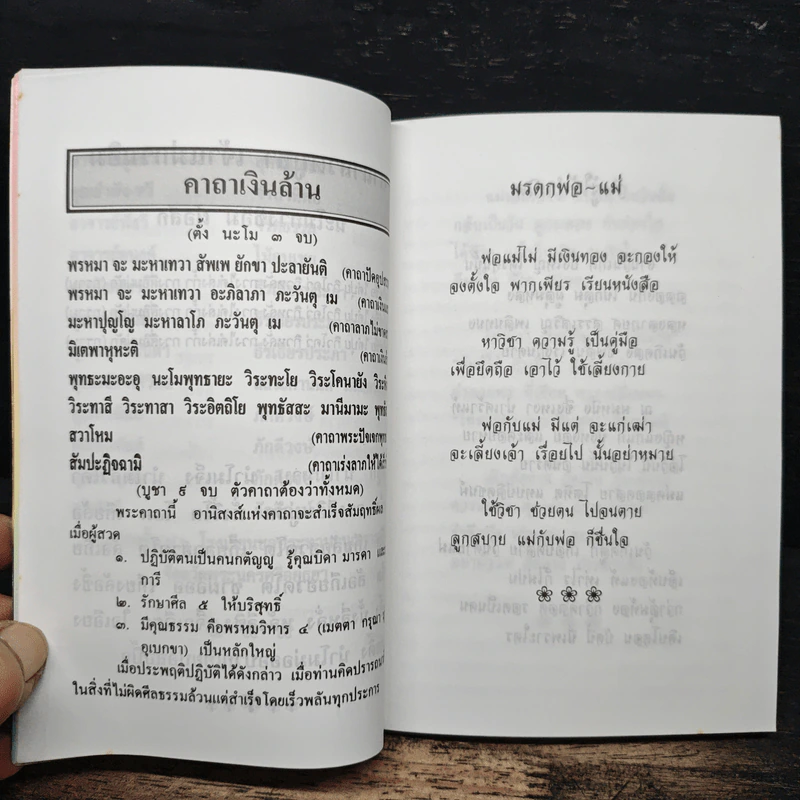 คาถาเงินล้าน
(ตั้ง นะโม ๓ จบ)
พรหมา จะ มะหาเทวา สัพเพ ยักขา ปะลายันติ
พรหมา จะ มะหาเทวา อะภิลาภา ภะวันตุ เม
มะหาปุญโญ มะหาลาโภ ภะวันตุ เม
มิเตพาหุหะติ
พุทธะมะอะอุ นะโมพุทธายะ วิระทะโย วิระโคนายัง
วิระทาสี วิระทาสา วิระอิตถิโย พุทธัสสะ มานีมามะ
สวาโหม
สัมปะฏิจฉามิ
(บูชา ๙ จบ ตัวคาถาต้องว่าทั้งหมด)
พระคาถานี้ อานิสงส์แห่งคาถาจะสำเร็จสัมฤทธิ์
เมื่อผู้สวด
๑. ปฏิบัติตนเป็นคนกตัญญู รู้คุณบิดา มารดา
การี
๒. รักษาศีล ๕ ให้บริสุทธิ์
๓. มีคุณธรรม คือพรหมวิหาร ๔ (เมตตา กรุณา
อุเบกขา) เป็นหลักใหญ่
เมื่อประพฤติปฏิบัติได้ดังกล่าว เมื่อท่านคิดปรารถนา
ในสิ่งที่ไม่ผิดศีลธรรมล้วนแต่สำเร็จโดยเร็วพลันทุกประการ
มรดกพ่อ~แม่
พ่อแม่ไม่ มีเงินทอง จะกองให้
จงตั้งใจ พากเพียร เรียนหนังสือ
หาวิชา ความรู้ เป็นคู่มือ
เพื่อยึดถือ เอาไว้ ใช้เลี้ยงกาย
พ่อกับแม่ มีแต่ จะแก่เฒ่า
จะเลี้ยงเจ้า เรื่อยไป นั้นอย่าหมาย
ใช้วิชา ช่วยตน ไปจนตาย
ลูกสบาย แม่กับพ่อ ก็ชื่นใจ